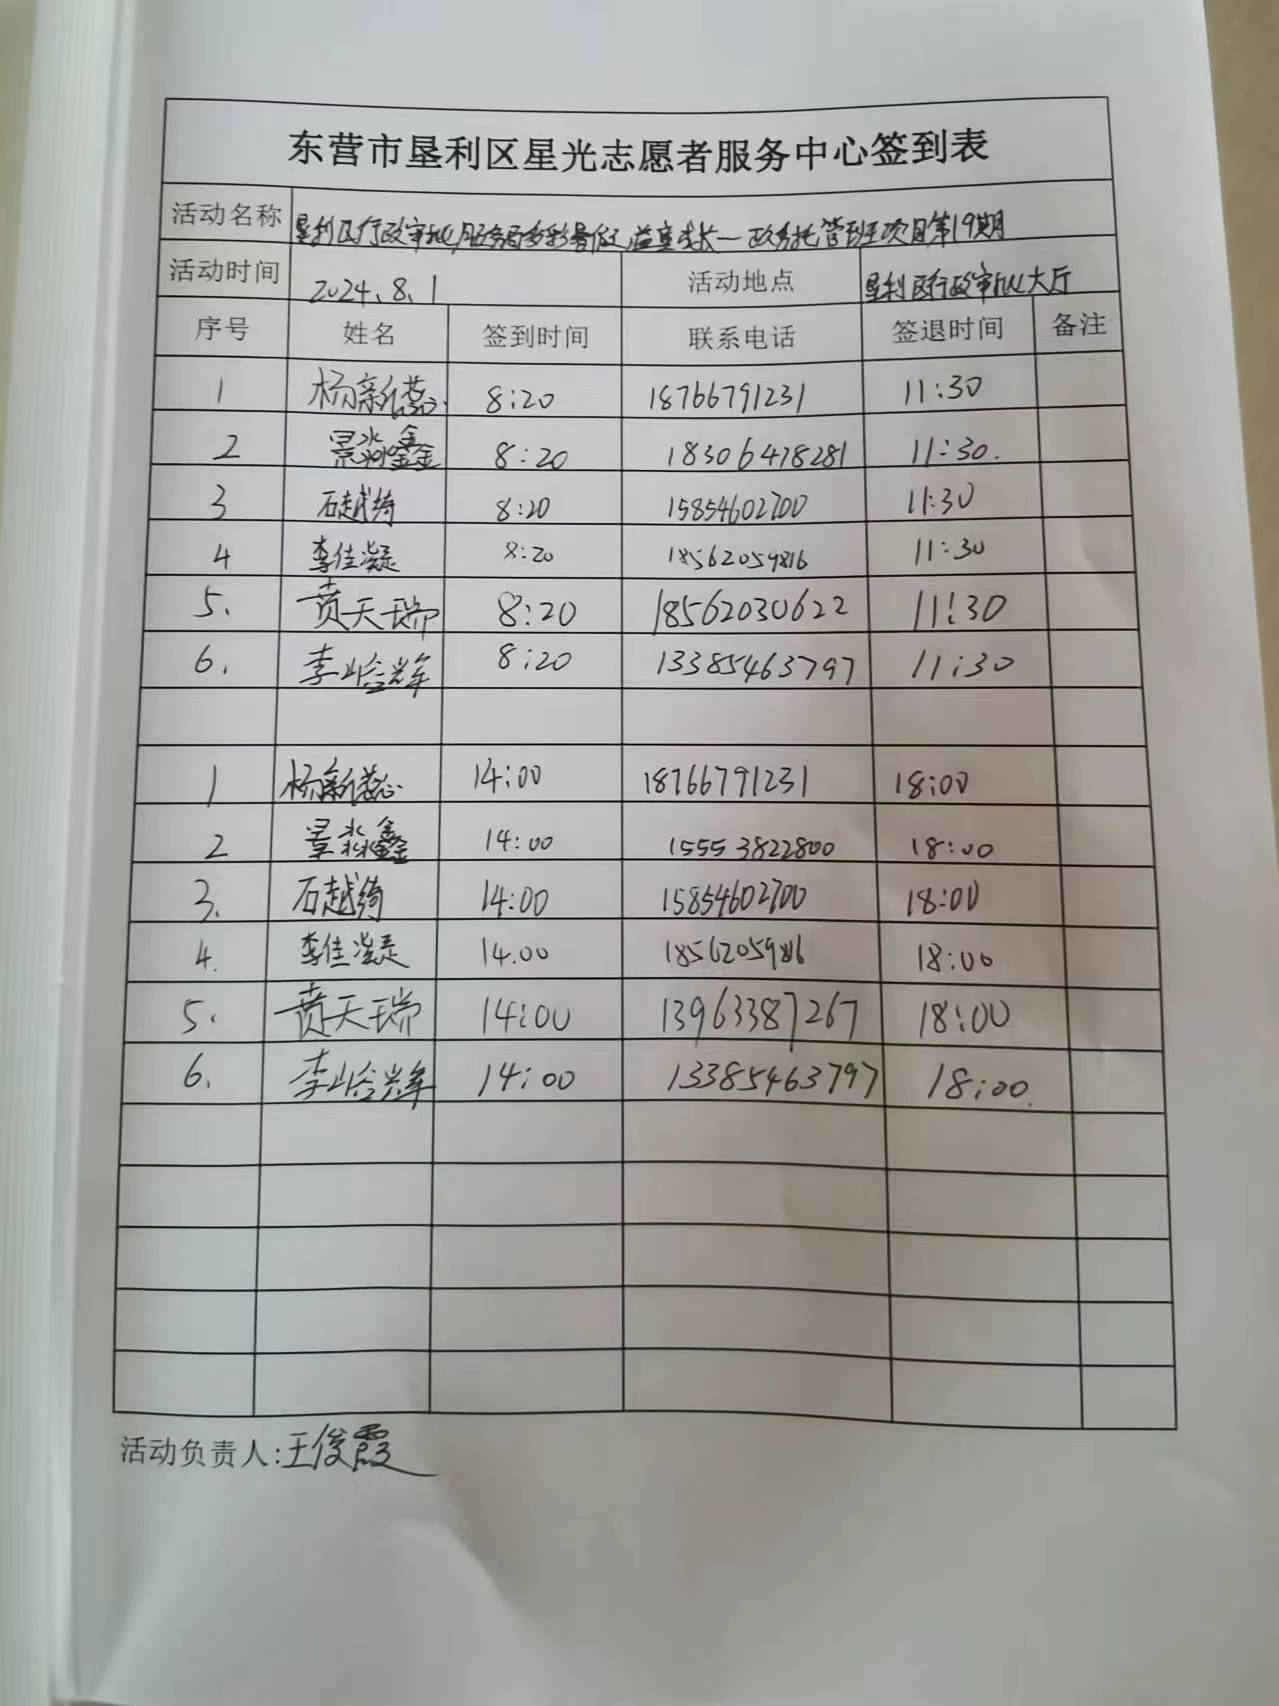 东营市垦利区星光志愿者服务中心签到表
活动名称 垦利区行政审批服务局多彩暑假,益童成长—政务托管班项目第19期
活动时间 2024.8.1 活动地点 垦利区行政审批大厅
序号 姓名 签到时间 联系电话 签退时间 备注
1 杨新蕊 8:20 18766791231 11:30
2 景淼鑫 8:20 18306478281 11:30.
3 石越绮 8:20 15854602700 11:30
4 李佳凝 8:20 18562059816 11:30
5. 贲天瑞 8:20 18562030622 11:30
6. 李峪辉 8:20 13385463797 11:30
1 杨新蕊 14:00 18766791231 18:00
2 景淼鑫 14:00 15553822800 18:00
3. 石越绮 14:00 15854602700 18:00
4. 李佳凝 14.00 18562059816 18:00
5. 贲天瑞 14:00 13963387267 18:00
6. 李峪辉 14:00 13385463797 18:00.
活动负责人:王俊霞